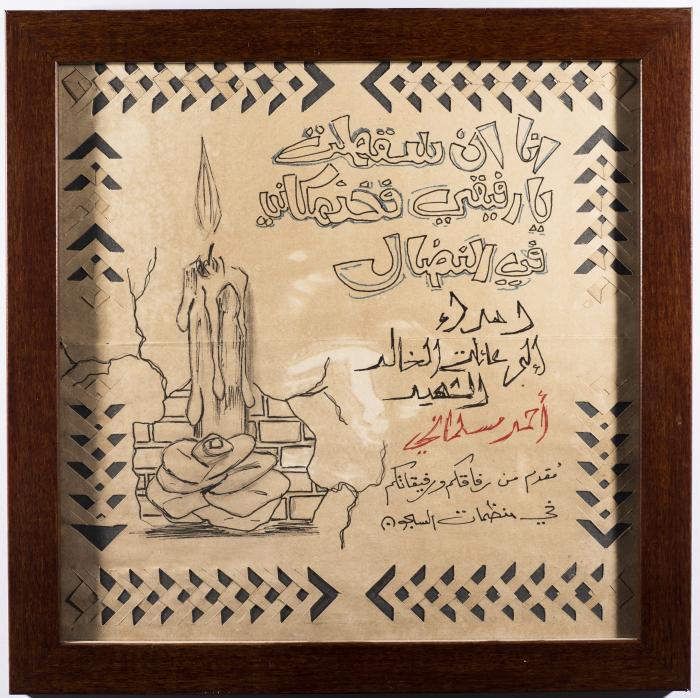 انا ان سقطت
يا رفيقي فخذ مكاني
في النضال
اهداء
إلى عائلة الخالد
الشهيد
أحمد مسلماني
مُقدم من رفاقكم ورفيقاتكم
في منظمات السجون